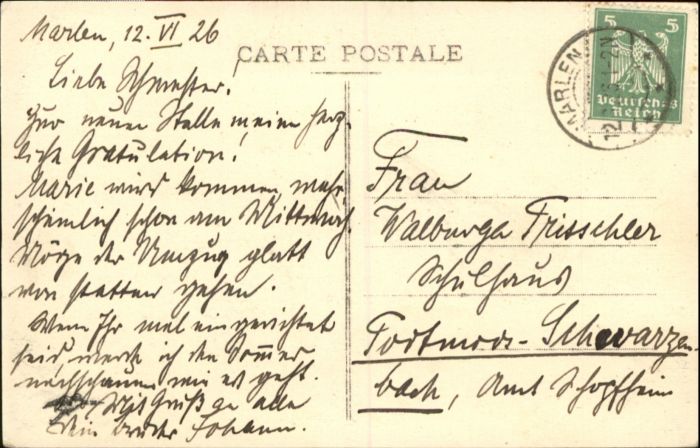 Marlen, 12. VI 26
CARTE POSTALE
Liebe Schwester!
Zur neuen Stelle meine herz-
liche Gratulation!
Marie wird kommen, wahr-
scheinlich schon am Mittwoch.
Möge der Umzug glatt
von statten gehen.
Wenn Ihr mal eingerichtet
seid, werde ich den Sommer
nachschauen wie es geht.
Mit Gruß an alle
Dein Bruder Johann.
5 5
Deutsches
Reich
MARLEN
Frau
Walburga Fritschler
Schulhaus
Todtmoos-Schwarzen-
bach, Amt Schopfheim